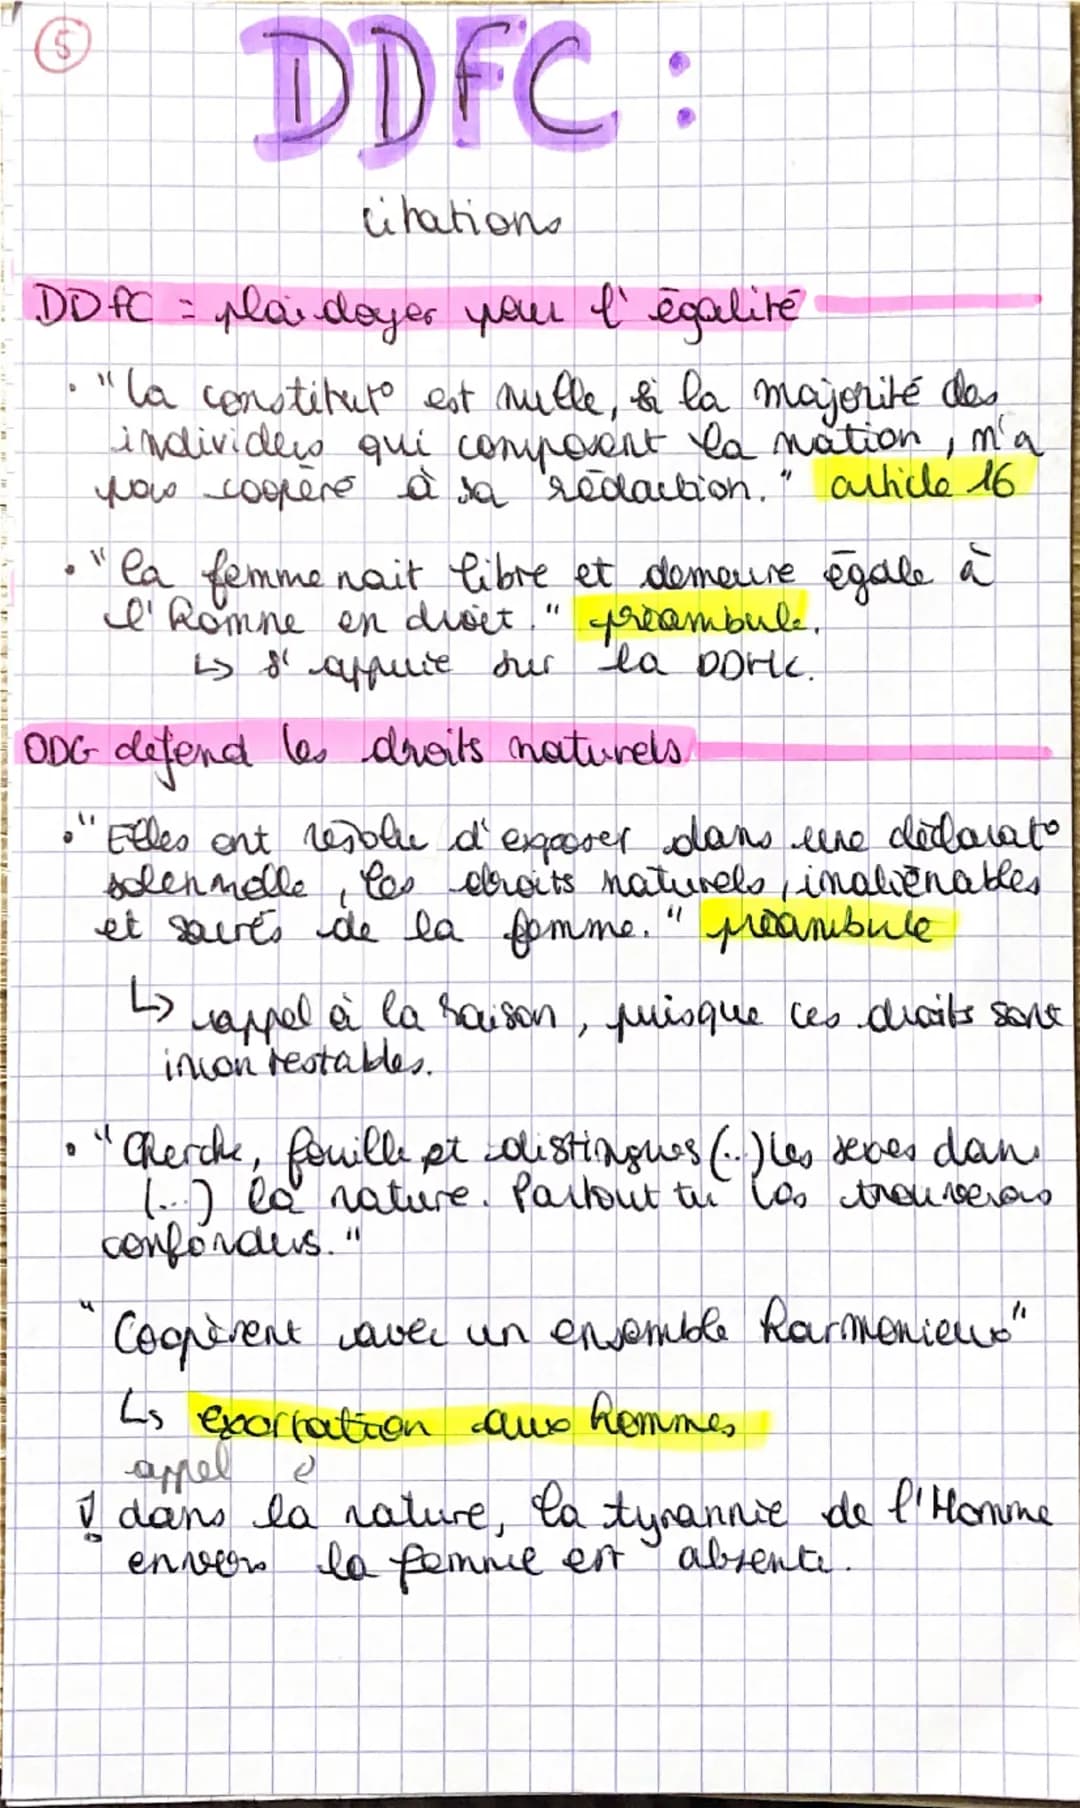 5
DDFC :
citations
DDFC = plaidoyer pour l'égalité
• "la constitut° est nulle, si la majorité des
individus qui composent la nation, n'a
pas coopéré à sa rédaction." article 16
• "la femme nait libre et demeure égale à
l'homme en droit." préambule.
↳ s'appuie sur la DDHC.
ODG défend les droits naturels
• "Elles ont résolu d'exposer dans une déclarat°
solennelle, les droits naturels, inaliénables
et sacrés de la femme." préambule
↳ rappel à la raison, puisque ces droits sont
incontestables.
• "Cherche, fouille et distingues (...) les sexes dans
(...) la nature. Partout tu les trouveras
confondus."
"Coopèrent avec un ensemble harmonieux"
↳ exortation aux hommes
appel
dans la nature, la tyrannie de l'Homme
envers la femme est absente.